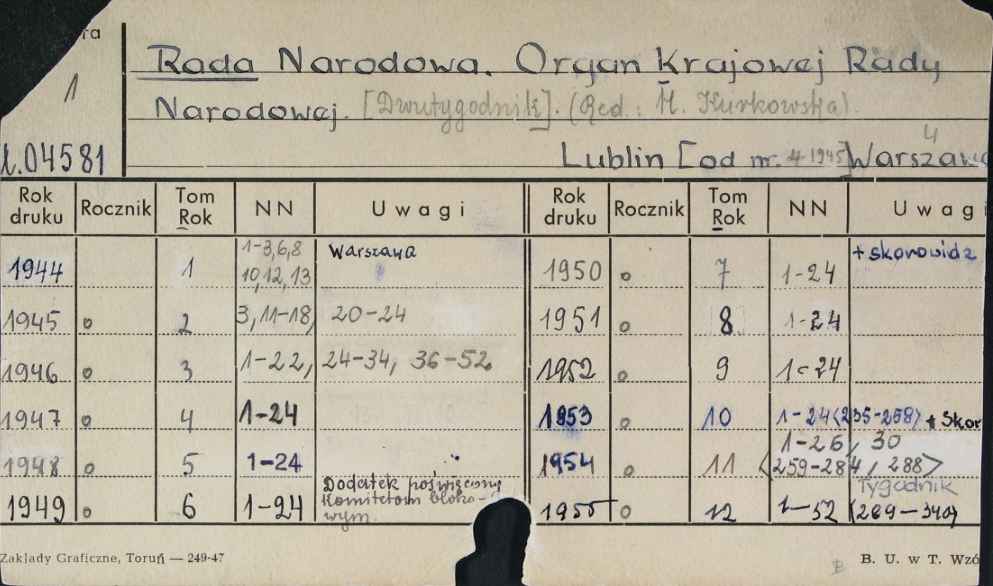 ra
1
Rada Narodowa. Organ Krajowej Rady
Narodowej. [Dwutygodnik]. (Red.: M. Kurkowska).
4
04581 Lublin [od nr. 4-1945] Warszawa
Rok druku Rocznik Tom Rok NN Uwagi Rok druku Rocznik Tom Rok NN Uwagi
1944 1 1-3,6,8 10,12,13 Warszawa 1950 o 7 1-24 + skorowidz
1945 o 2 3, 11-18, 20-24 1951 o 8 1-24
1946 o 3 1-22, 24-34, 36-52 1952 o 9 1-24
1947 o 4 1-24 1953 o 10 1-24 (235-258) + Skor
1948 o 5 1-24 1954 o 11 1-26, 30 <259-284, 288>
1949 o 6 1-24 Dodatek poświęcony Komitetom blokowym. 1955 o 12 1-52 Tygodnik
Zakłady Graficzne, Toruń — 249-47 B B. U. w T. Wzó